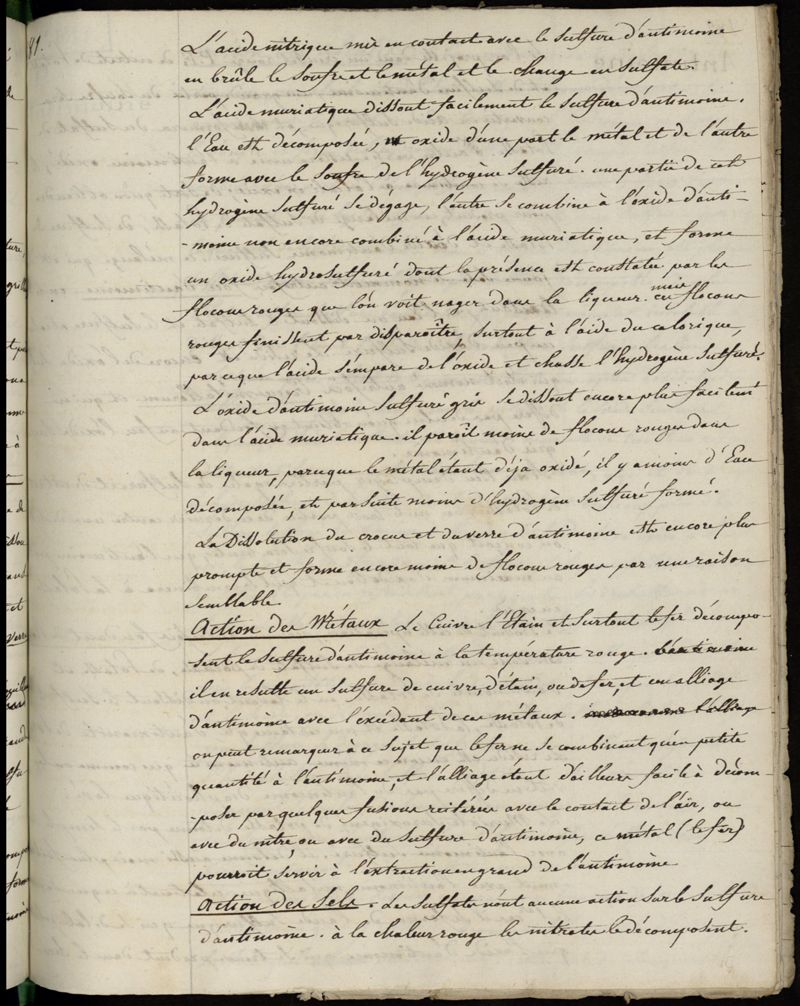 81.
L'acide nitrique mis en contact avec le sulfure d'antimoine
en brûle le soufre et le métal et le change en sulfate.
L'acide muriatique dissout facilement le sulfure d'antimoine.
l'Eau est décomposée, oxide d'une part le métal et de l'autre
forme avec le soufre de l'hydrogène sulfuré. une partie de cet
hydrogène sulfuré se dégage, l'autre se combine à l'oxide d'anti-
-moine non encore combiné à l'acide muriatique, et forme
un oxide hydrosulfuré dont la présence est constatée par les
flocons rouges que l'on voit nager dans la liqueur. mais ces flocons
rouges finissent par disparoître, surtout à l'aide du calorique,
parceque l'acide s'empare de l'oxide et chasse l'hydrogène sulfuré.
L'oxide d'antimoine sulfuré gris se dissout encore plus facilemt
dans l'acide muriatique. il paroît moins de flocons rouges dans
la liqueur, parceque le métal étant déja oxidé, il y a moins d'Eau
décomposée, et par suite moins d'hydrogène sulfuré formé.
La Dissolution du crocus et du verre d'antimoine est encore plus
prompte et forme encore moins de flocons rouges par une raison
semblable.
Action des Métaux Le Cuivre l'Etain et surtout le fer décompo-
-sent le sulfure d'antimoine à la température rouge. l'antimoine
il en resulte un sulfure de cuivre, d'étain, ou de fer, et un alliage
d'antimoine avec l'excédant de ces métaux. l'alliage
on peut remarquer à ce sujet que le fer ne se combinant qu'en petite
quantité à l'antimoine, et l'alliage étant d'ailleurs facile à décom-
-poser par quelques fusions reitérées avec le contact de l'air, ou
avec du nitre ou avec du sulfure d'antimoine, ce métal (le fer)
pourroit servir à l'extraction en grand de l'antimoine
Action des Sels. Les sulfates n'ont aucune action sur le sulfure
d'antimoine. à la chaleur rouge les nitrates le décomposent.